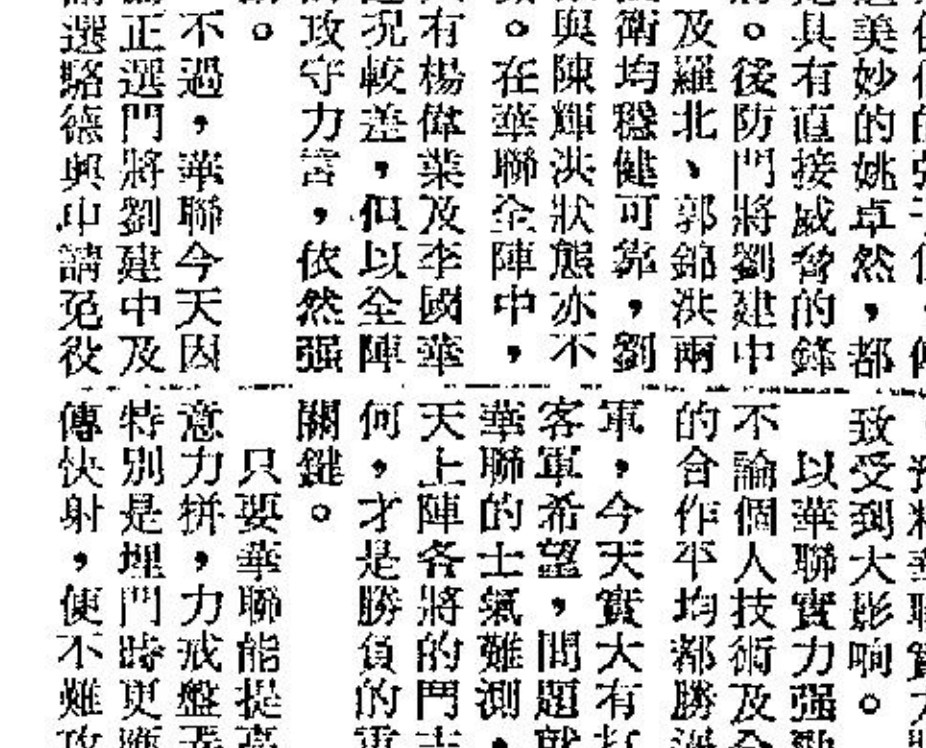 美妙的姚卓然，都
具有直接威脅的鋒
。後防門將劉建中
及羅北、郭錦洪兩
衛均穩健可靠，劉
與陳輝洪狀態亦不
。在華聯全陣中，
有楊偉業及李國華
況較差，但以全陣
攻守力言，依然强
。
不過，華聯今天因
正選門將劉建中及
選駱德興申請免役
致受到大影响。
以華聯實力强
不論個人技術及
的合作平均都勝
軍，今天實大有
客軍希望，問題
華聯的士氣難測，
天上陣各將的鬥
何，才是勝負的
關鍵。
只要華聯能提
意力拼，力戒盤
特別是埋門時更
傳快射，便不難